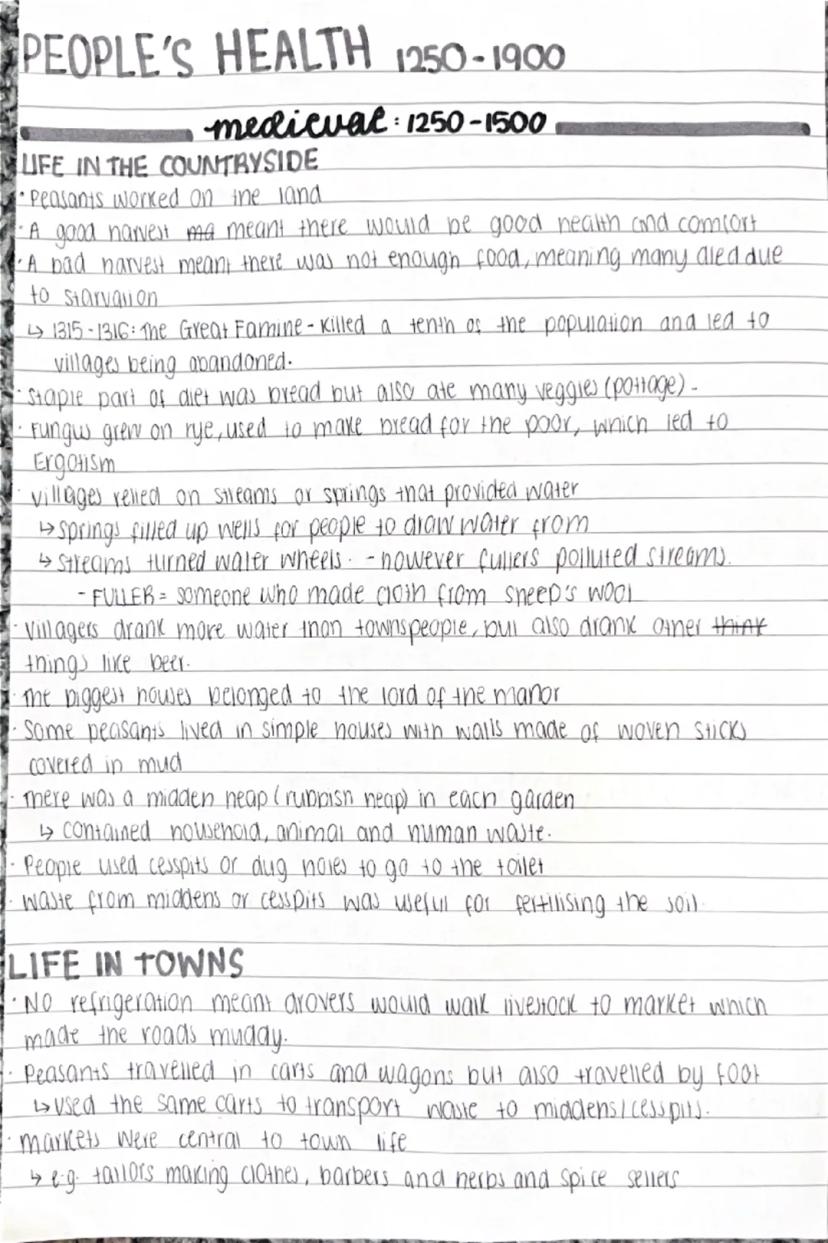 PEOPLE'S HEALTH 1250-1900
medieval: 1250-1500
LIFE IN THE COUNTRYSIDE
· Peasants worked on the land
· A good harvest ma meant there would be good health and comfort
· A bad harvest meant there was not enough food, meaning many died due
to starvation
↳ 1315-1316: The Great Famine - killed a tenth of the population and led to
villages being abandoned.
· Staple part of diet was bread but also ate many veggies (pottage).
· Fungus grew on rye, used to make bread for the poor, which led to
Ergotism
· Villages relied on streams or springs that provided water
↳ Springs filled up wells for people to draw water from
↳ Streams turned water wheels. - however fullers polluted streams.
- FULLER = someone who made cloth from sheep's wool
· Villagers drank more water than townspeople, but also drank other think
things like beer.
· The biggest houses belonged to the lord of the manor
· Some peasants lived in simple houses with walls made of woven sticks
covered in mud
· There was a midden heap (rubbish heap) in each garden
↳ contained household, animal and human waste.
· People used cesspits or dug holes to go to the toilet
· Waste from middens or cesspits was useful for fertilising the soil.
LIFE IN TOWNS
· No refrigeration meant drovers would walk livestock to market which
made the roads muddy.
· Peasants travelled in carts and wagons but also travelled by foot
↳ Used the same carts to transport waste to middens/cesspits.
· markets were central to town life
↳ e.g. tailors making clothes, barbers and herbs and spice sellers